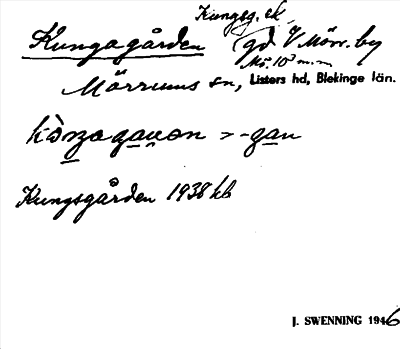 Kungsg. ek.
Kungagården gd V Mörr. by
Mö. 10³ m.m
Mörrums sn, Listers hd, Blekinge län.
kòŋagauon > -gau
Kungsgården 1938 kb
J. SWENNING 1946